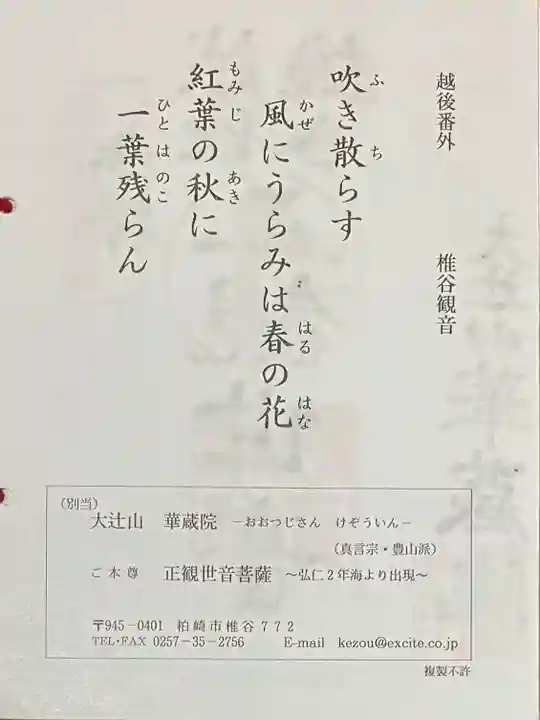 越後番外　椎谷観音
吹き散らす
風にうらみは春の花
紅葉の秋に
一葉残らん
ふ ち
かぜ はる はな
もみじ あき
ひとは のこ
(別当)
大辻山　華蔵院　－おおつじさん　けぞういん－
(真言宗・豊山派)
ご本尊　正観世音菩薩　～弘仁２年海より出現～
〒945-0401　柏崎市椎谷７７２
TEL・FAX 0257-35-2756　E-mail　kezou@excite.co.jp
複製不許